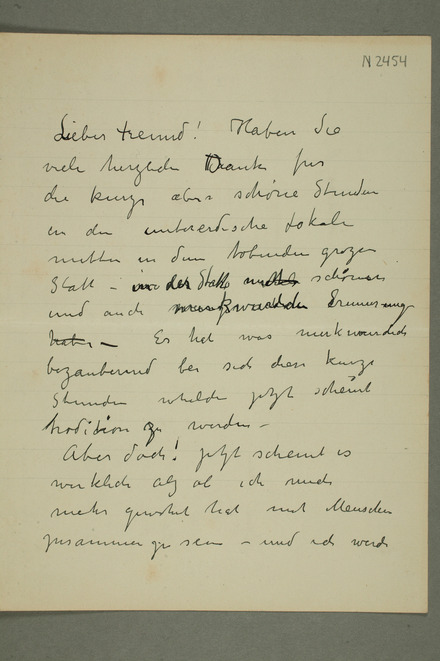 N2454
Lieber Freund! Haben Sie
viele herzliche Dank für
die kurze aber schöne Stunden
in den unterirdische Lokale
mitten in dem tobenden grozen
Statt – in der Statt schönen
und auch Erinnerung
haben – Es hat was merkwürdich
bezaubernd bei sich diese kurze
Stunden whelche jetzt scheint
tradition zu werden –
Aber doch! jetzt scheint es
wirklich alz ob ich mich
mehr gewohnt hat mit Menschen
zusammen zu sein – und ich werde